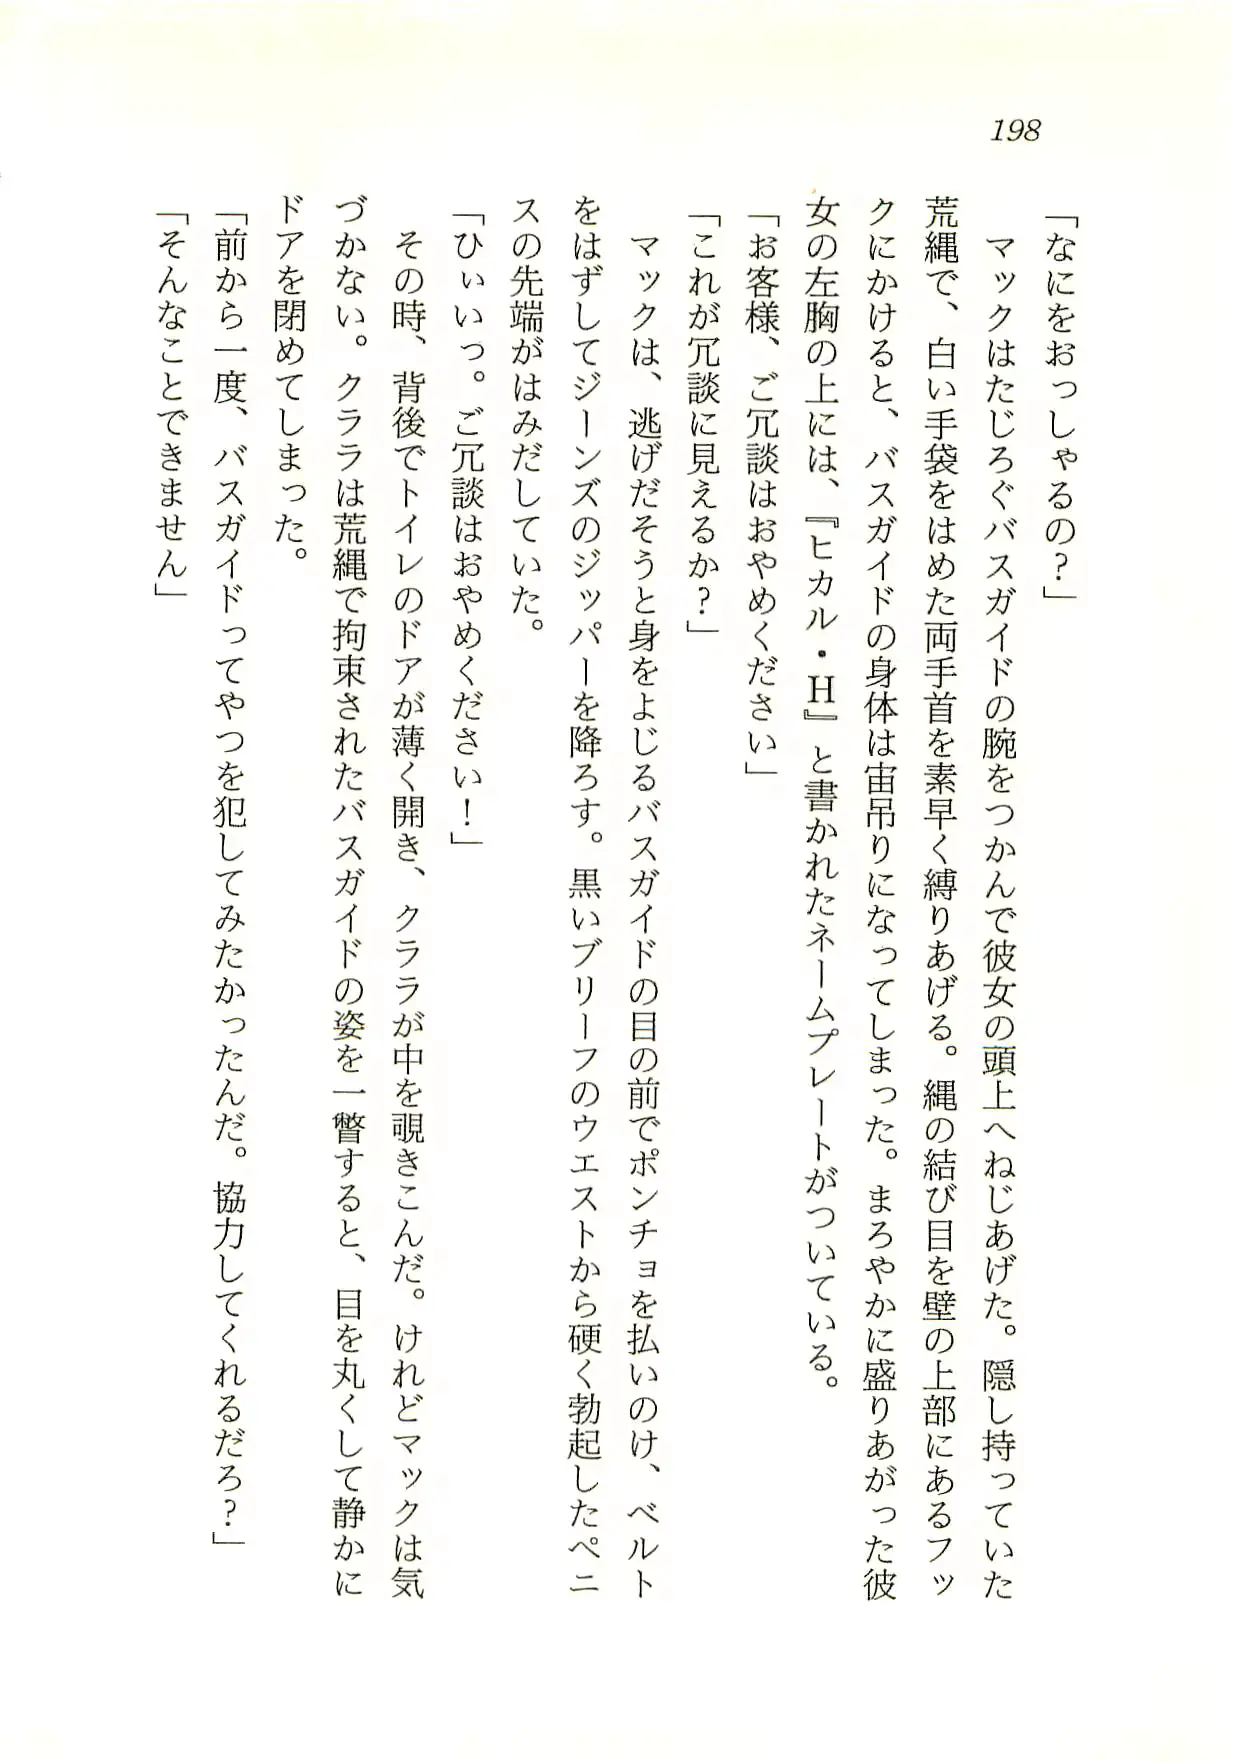 198
「なにをおっしゃるの？」
マックはたじろぐバスガイドの腕をつかんで彼女の頭上へねじあげた。隠し持っていた
荒縄で、白い手袋をはめた両手首を素早く縛りあげる。縄の結び目を壁の上部にあるフッ
クにかけると、バスガイドの身体は宙吊りになってしまった。まろやかに盛りあがった彼
女の左胸の上には、『ヒカル・H』と書かれたネームプレートがついている。
「お客様、ご冗談はおやめください」
「これが冗談に見えるか？」
マックは、逃げだそうと身をよじるバスガイドの目の前でポンチョを払いのけ、ベルト
をはずしてジーンズのジッパーを降ろす。黒いブリーフのウエストから硬く勃起したペニ
スの先端がはみだしていた。
「ひぃいっ。ご冗談はおやめください！」
その時、背後でトイレのドアが薄く開き、クララが中を覗きこんだ。けれどマックは気
づかない。クララは荒縄で拘束されたバスガイドの姿を一瞥すると、目を丸くして静かに
ドアを閉めてしまった。
「前から一度、バスガイドってやつを犯してみたかったんだ。協力してくれるだろ？」
「そんなことできません」